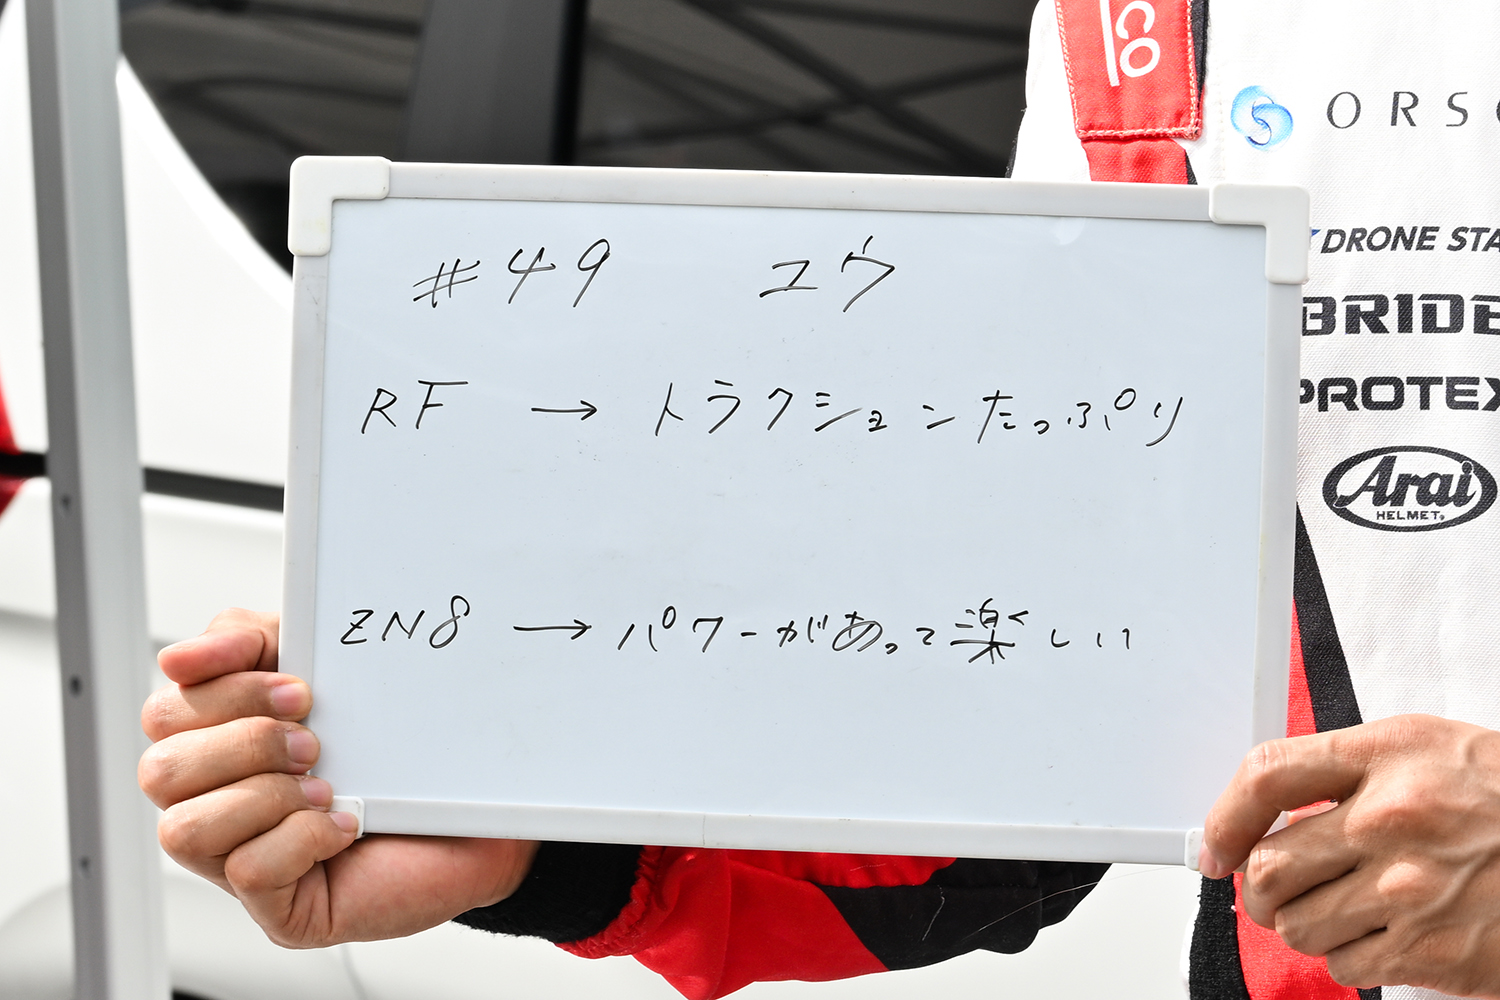 CO
ORSO
DRONE STA
BRIDE
PROTEX
Arai
HELMET
#49 ユウ
RF → トラクションたっぷり
ZN8 → パワーがあって楽しい